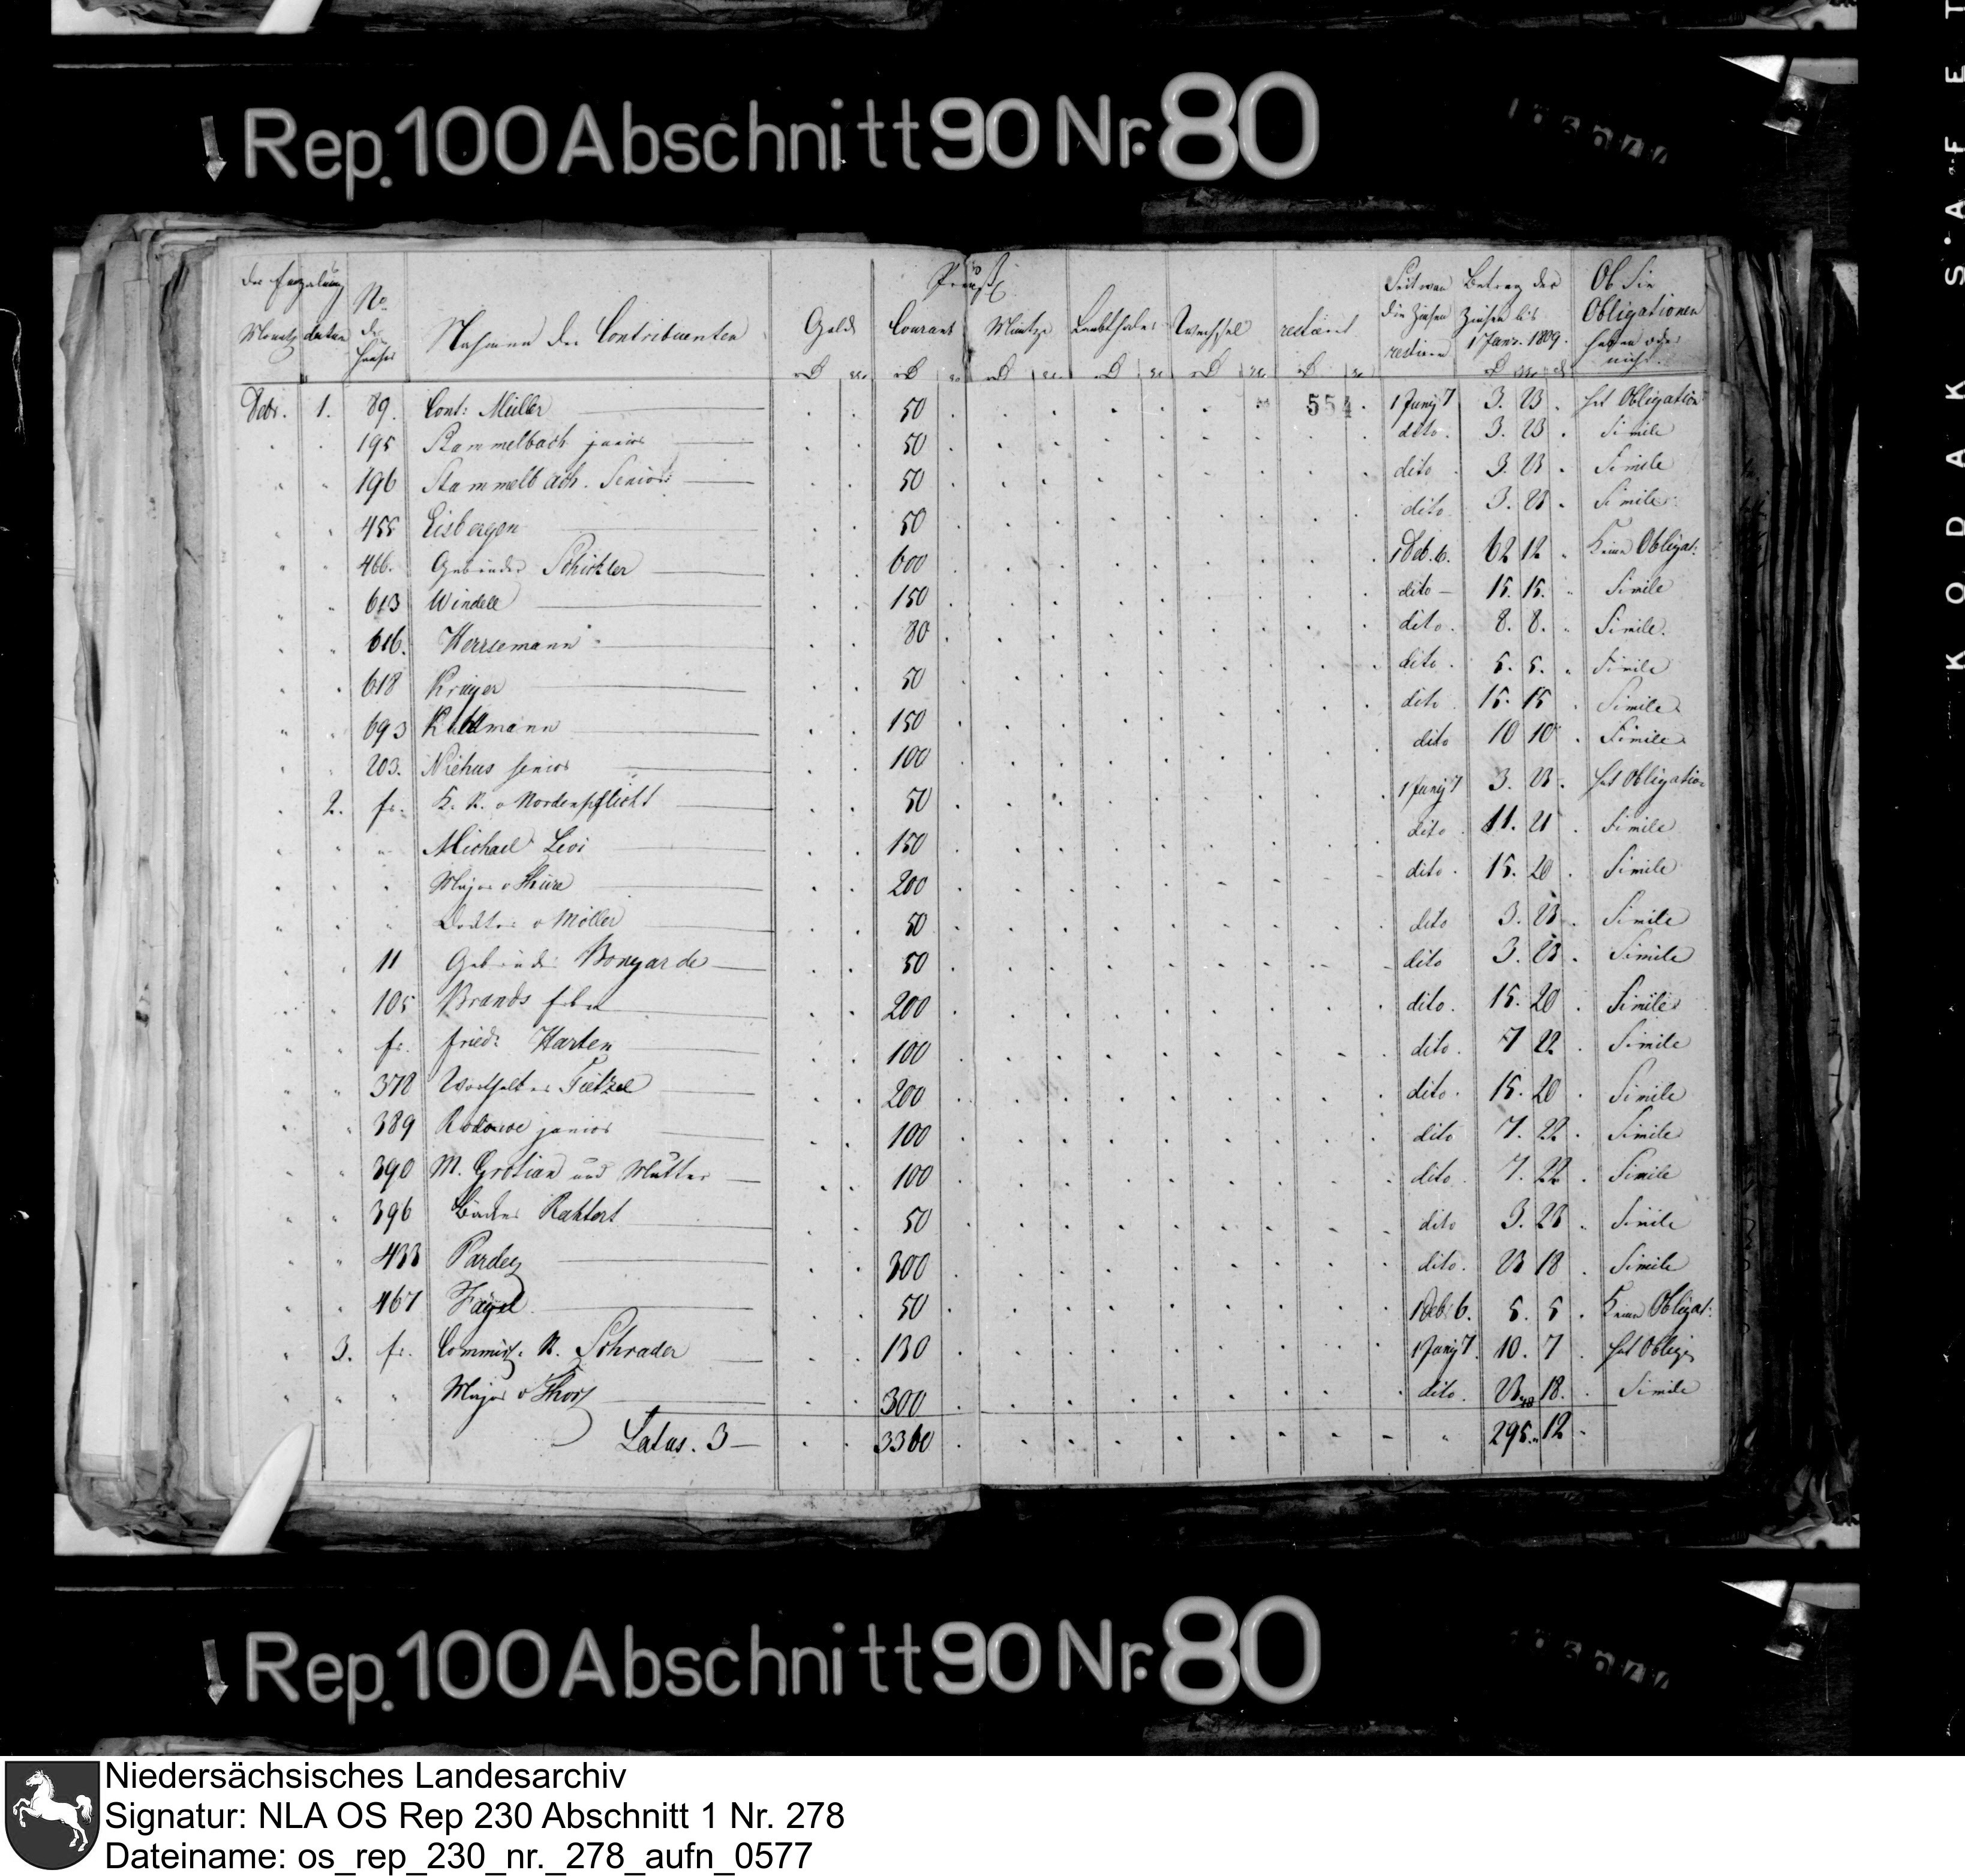 Rep. 100 Abschnitt 90 Nr. 80
KODAK S·A·F·E·T
Preuß
Monats datum
No der Hauses
Nahmen der Contribuenten
Gold
Courant
Müntze
Laubthaler
Wechsel
restant
Seit wann die Zinsen restiren
Betrag der Zinsen bis 1 Janr. 1809.
Ob Sie Obligationen haben oder nicht.
554
Debr. 1. 89. Cont: Müller 50 1 Junÿ 7 3. 23 hat Obligation
195 Stammelbach junior 50 dito. 3. 23 Simile
196 Stammelbach. Senior 50 dito 3. 23 Simile
455 Eisbergen 50 dito 3. 23 Simile
466. Gebrüder Schickler 600 1 Deb. 6. 62 12 Keine Obligat:
613 Windell 150 dito 15. 15. Simile
616. Herrsemann 80 dito. 8. 8. Simile.
618 Krüger 50 dito 5. 5. Simile
693 mann 150 dito 15. 15 Simile
203. Niehus senior 100 dito 10 10 Simile
2. fr. K. R. v Nordenpflicht 50 1 Junÿ 7 3. 23. hat Obligation
Michael Levi 150 dito 11. 21 Simile
Major v Thüra 200 dito. 15. 20 Simile
Docktor v Möller 50 dito 3. 23. Simile
11 Gebrüder Bongarde 50 dito 3. 23. Simile
105 Brands 200 dito. 15. 20 Simile
fr. Friedr Harten 100 dito. 7 22 Simile
378 Worthalter Tietzel 200 dito. 15. 20 Simile
389 Rodowe junior 100 dito 7. 22. Simile
390 M. Grotian und Mutter 100 dito. 7. 22. Simile
396 Bäcker Rahtert 50 dito 3. 23 Simile
433 Pardey 300 dito. 23 18 Simile
467 50 1 Deb: 6. 5. 5 Keine Obligat:
3. fr. Commiss. R. Schrader 130 1 Junÿ 7. 10. 7 hat Oblig
Major v 300 dito. 23 18. Simile
Latus. 3 3360 295. 12
Rep. 100 Abschnitt 90 Nr. 80
Niedersächsisches Landesarchiv
Signatur: NLA OS Rep 230 Abschnitt 1 Nr. 278
Dateiname: os_rep_230_nr._278_aufn_0577